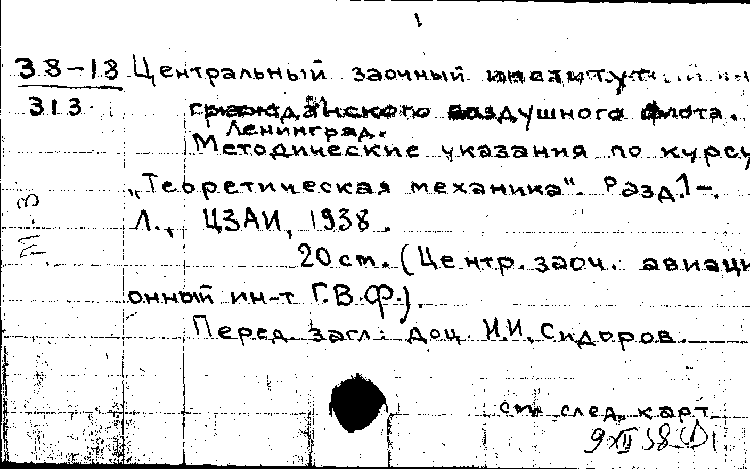 1
38-18 Центральный заочный институт
313 гражданского воздушного флота.
Ленинград.
Методические указания по курсу
„Теоретическая механика". Разд. 1-.
Л., ЦЗАИ, 1938.
20 см. (Центр. заоч. авиаци
онный ин-т Г.В.Ф.).
Перед загл: доц. И.И. Сидоров.
см. след. карт.
9 XII 38